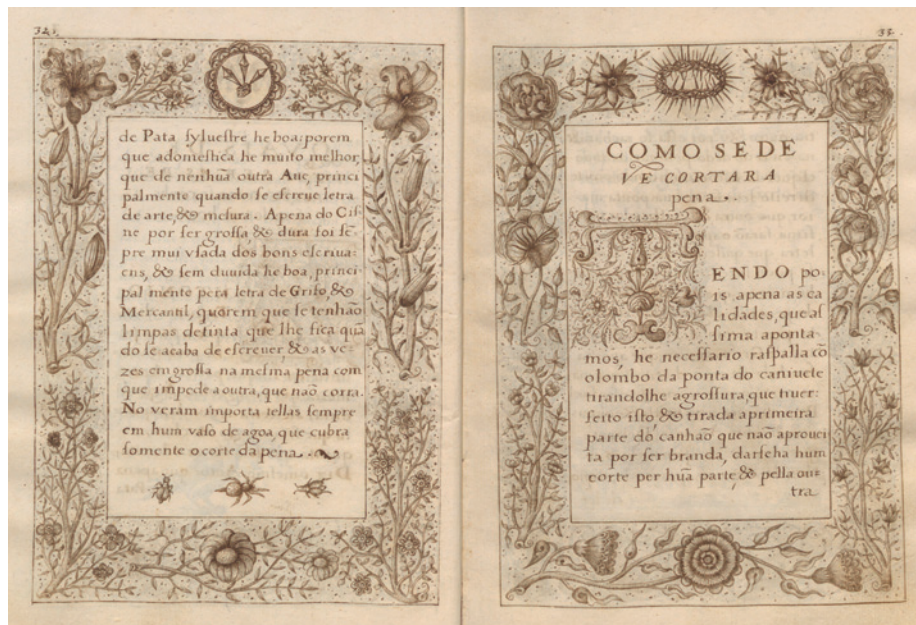 32.
de Pata syluestre he boa: porem
que adomestica he muito melhor,
que de nenhũa outra Aue, princi
palmente quando se escreue letra
de arte, & mesura. Apena do Cis
ne por ser grossa, & dura foi sẽ
pre mui vsada dos bons escriua:
ens, & sem duuida he boa, princi
pal mente pera letra de Grifo, &
Mercantil, quorem que se tenhaõ
limpas detinta que lhe fica quã
do se acaba de escreuer & as ve
zes emgrossa na mesma pena com
que impede a outra, que naõ corra.
No veram importa tellas sempre
em hum vaso de agoa, que cubra
somente o corte da pena.
33.
COMO SE DE
VE CORTAR A
pena.
TENDO po
is apena as ca
lidades, que as
sima aponta
mos, he necessario raspalla cõ
olombo da ponta do caniuete
tirandolhe agrossura, que tiuer:
feito isto, & tirada aprimeira
parte do canhaõ que naõ aprouei
ta por ser branda, darselha hum
corte per hũa parte, & pella out
tra